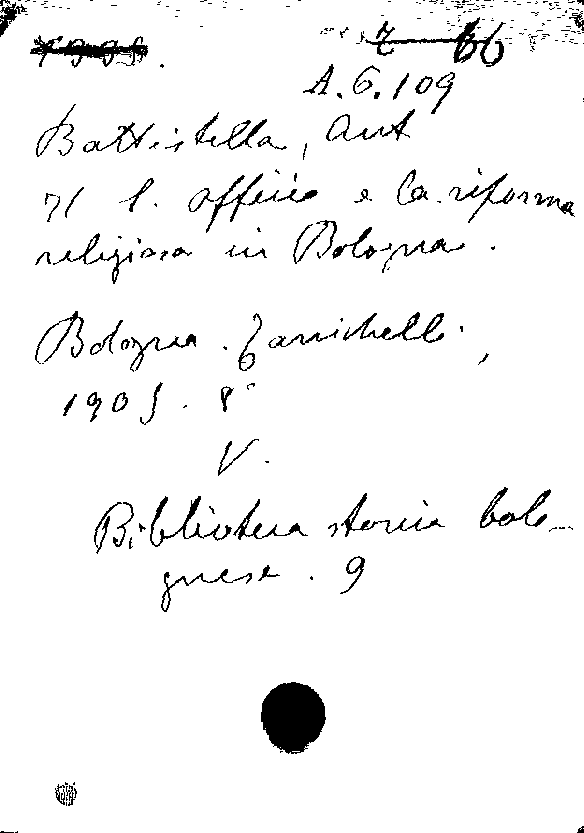 A.6.109
Battistella, Ant
Il S. Officio e la riforma
religiosa in Bologna.
Bologna. Zanichelli,
1905. 8°
V.
Biblioteca storica bolo-
gnese. 9